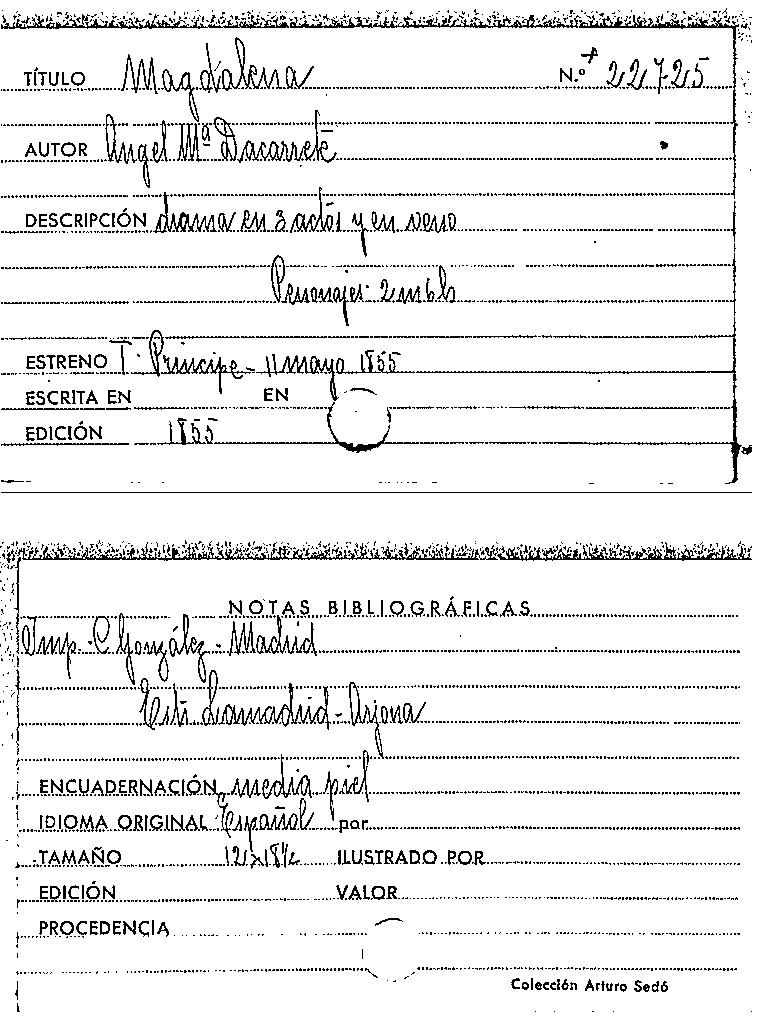 TÍTULO Magdalena N.º 22725
AUTOR Angel Mª Dacarrete
DESCRIPCIÓN drama en 3 actos y en verso
Personajes: 2 m 6 h
ESTRENO T. Príncipe - 11 mayo 1855
ESCRITA EN EN
EDICIÓN 1855
NOTAS BIBLIOGRÁFICAS
Imp. C. González - Madrid
Lamadrid - Arjona
ENCUADERNACIÓN media piel
IDIOMA ORIGINAL Español por
TAMAÑO 12 x 18½ ILUSTRADO POR
EDICIÓN VALOR
PROCEDENCIA
Colección Arturo Sedó